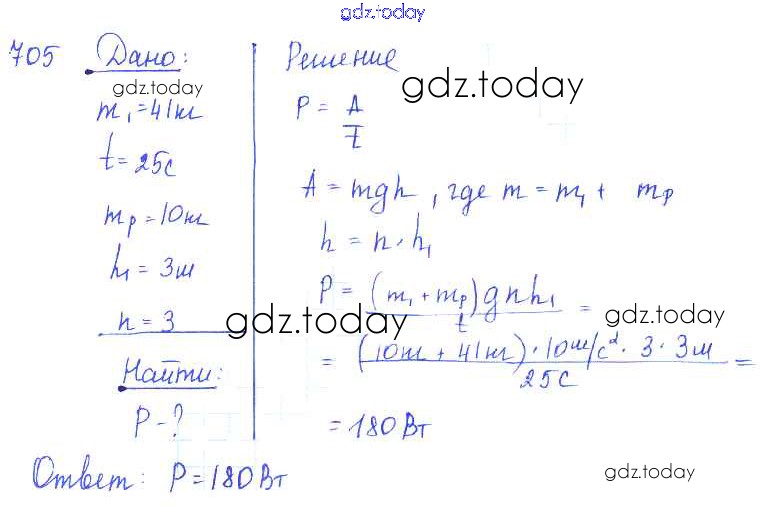 gdz.today
705 Дано:
gdz.today
m₁=41кг
t=25c
mр=10кг
h₁=3м
n=3
Найти:
P-?
Решение
gdz.today
P = A/t
A = mgh, где m = m₁ + mр
h = n·h₁
P = (m₁+mр)gnh₁/t =
gdz.today
gdz.today
= (10кг + 41кг)·10м/c²·3·3м/25c =
= 180 Вт
Ответ: P=180 Вт
gdz.today